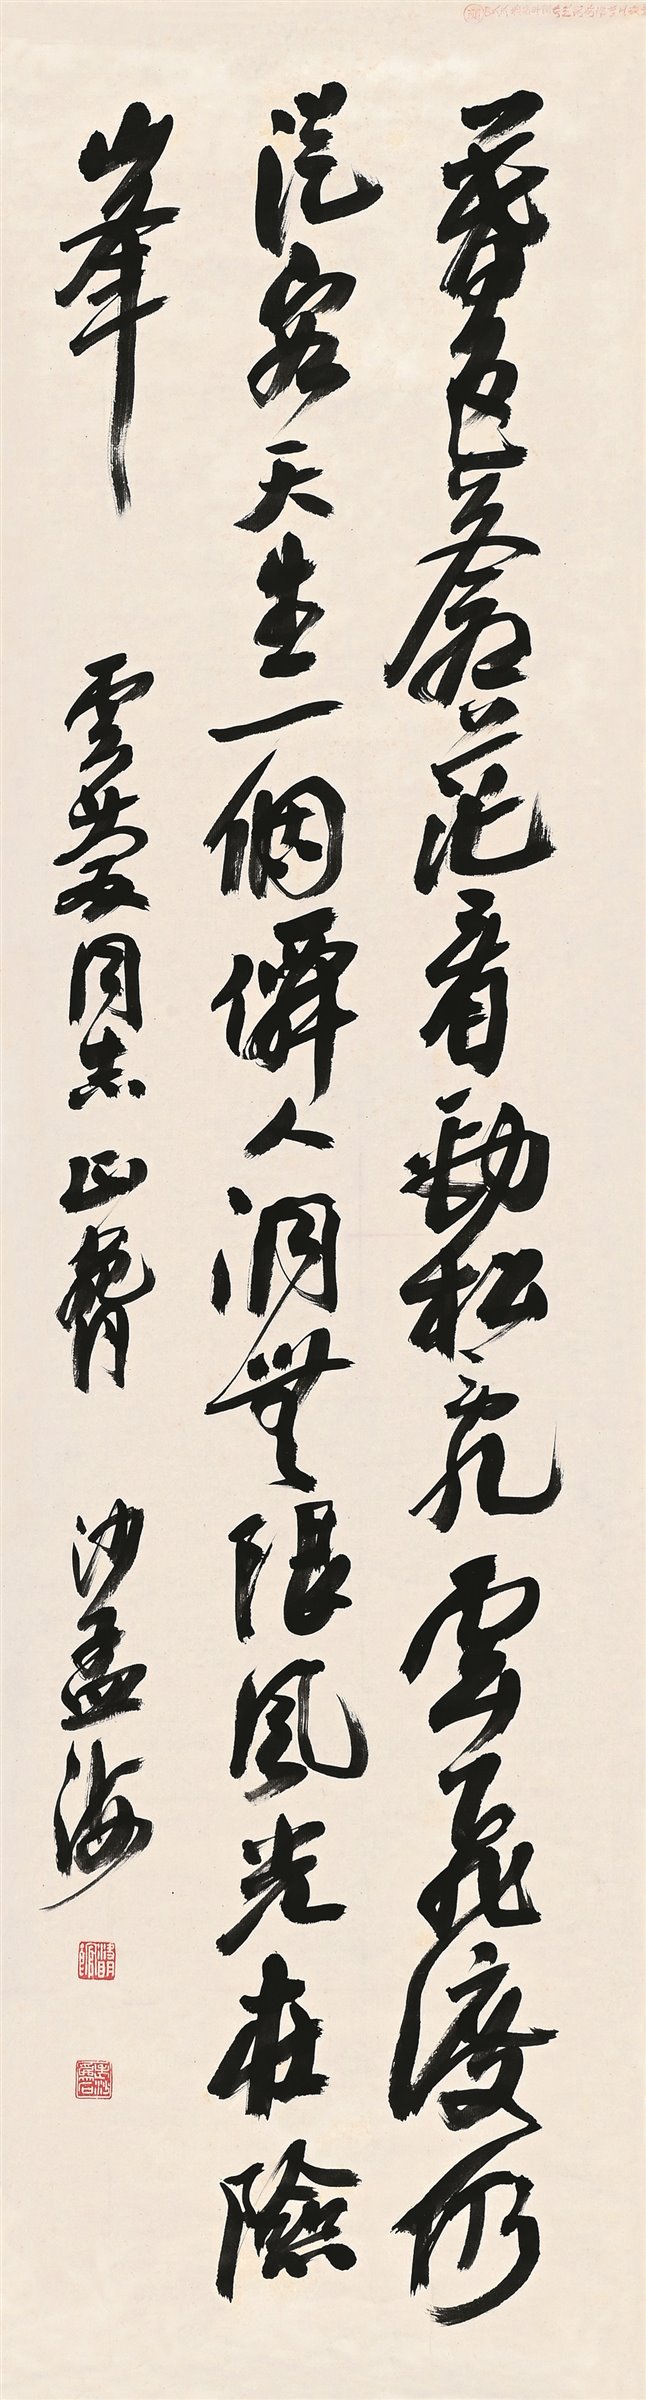 暮色蒼茫看勁松亂雲飛渡仍
從容天生一個僊人洞無限風光在險
峯
雲 同志正
沙孟海